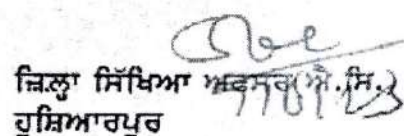 ਜ਼ਿਲ੍ਹਾ ਸਿੱਖਿਆ ਅਫਸਰ ਐ.ਸਿ.
ਹੁਸ਼ਿਆਰਪੁਰ